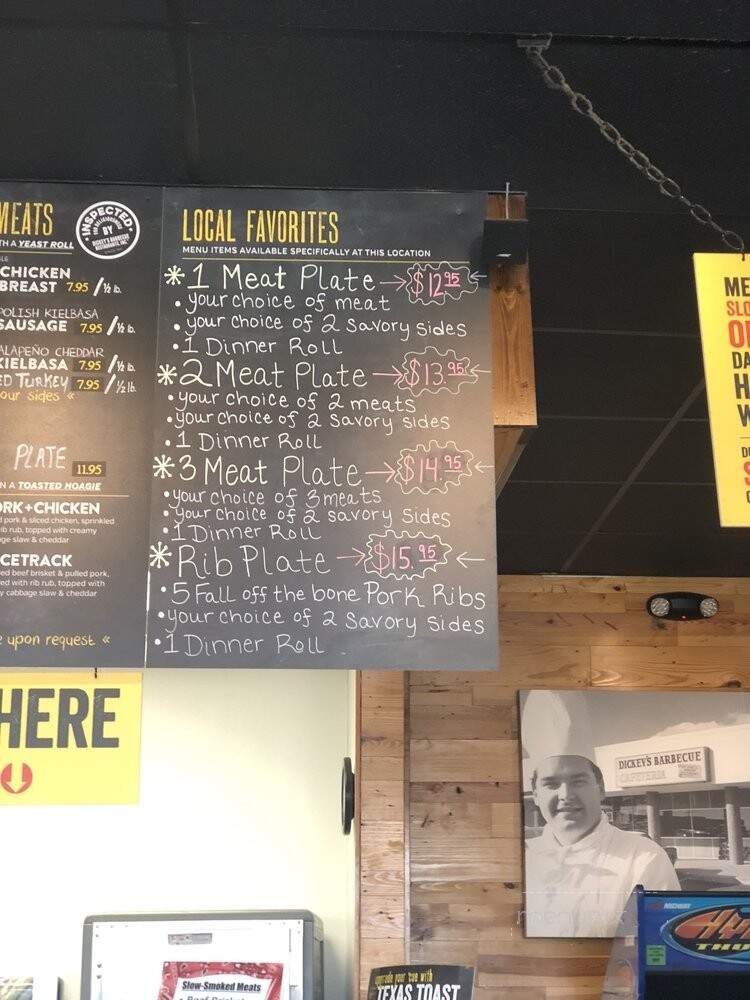 MEATS
TH A YEAST ROLL
INSPECTED
BY
DICKEY'S BARBECUE
RESTAURANTS, INC.
CHICKEN
BREAST 7.95 / ½ lb.
POLISH KIELBASA
SAUSAGE 7.95 / ½ lb.
ALAPEÑO CHEDDAR
KIELBASA 7.95 / ½ lb.
ED TURKEY 7.95 / ½ lb.
our sides «
PLATE 11.95
N A TOASTED HOAGIE
ORK + CHICKEN
d pork & sliced chicken, sprinkled
ib rub, topped with creamy
ge slaw & cheddar
CETRACK
ed beef brisket & pulled pork,
ed with rib rub, topped with
y cabbage slaw & cheddar
e upon request «
LOCAL FAVORITES
MENU ITEMS AVAILABLE SPECIFICALLY AT THIS LOCATION
* 1 Meat Plate → $12.95 ←
• your choice of meat
• your choice of 2 savory sides
• 1 Dinner Roll
* 2 Meat Plate → $13.95 ←
• your choice of 2 meats
• your choice of 2 savory sides
• 1 Dinner Roll
* 3 Meat Plate → $14.95 ←
• your choice of 3 meats
• your choice of 2 savory Sides
• 1 Dinner Roll
* Rib Plate → $15.95 ←
• 5 Fall off the bone Pork Ribs
• your choice of 2 Savory sides
• 1 Dinner Roll
ME
SLO
DA
HERE
DICKEY'S BARBECUE
CAFETERIA
MIDWAY
THU
Slow-Smoked Meats
upgrade your 'cue with
TEXAS TOAST